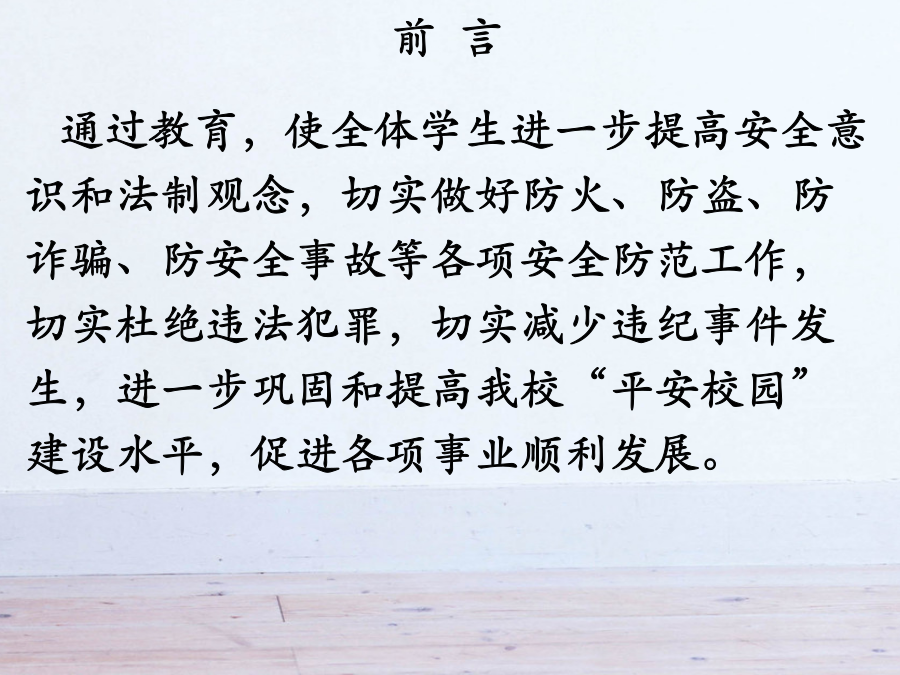 前 言
通过教育，使全体学生进一步提高安全意
识和法制观念，切实做好防火、防盗、防
诈骗、防安全事故等各项安全防范工作，
切实杜绝违法犯罪，切实减少违纪事件发
生，进一步巩固和提高我校“平安校园”
建设水平，促进各项事业顺利发展。